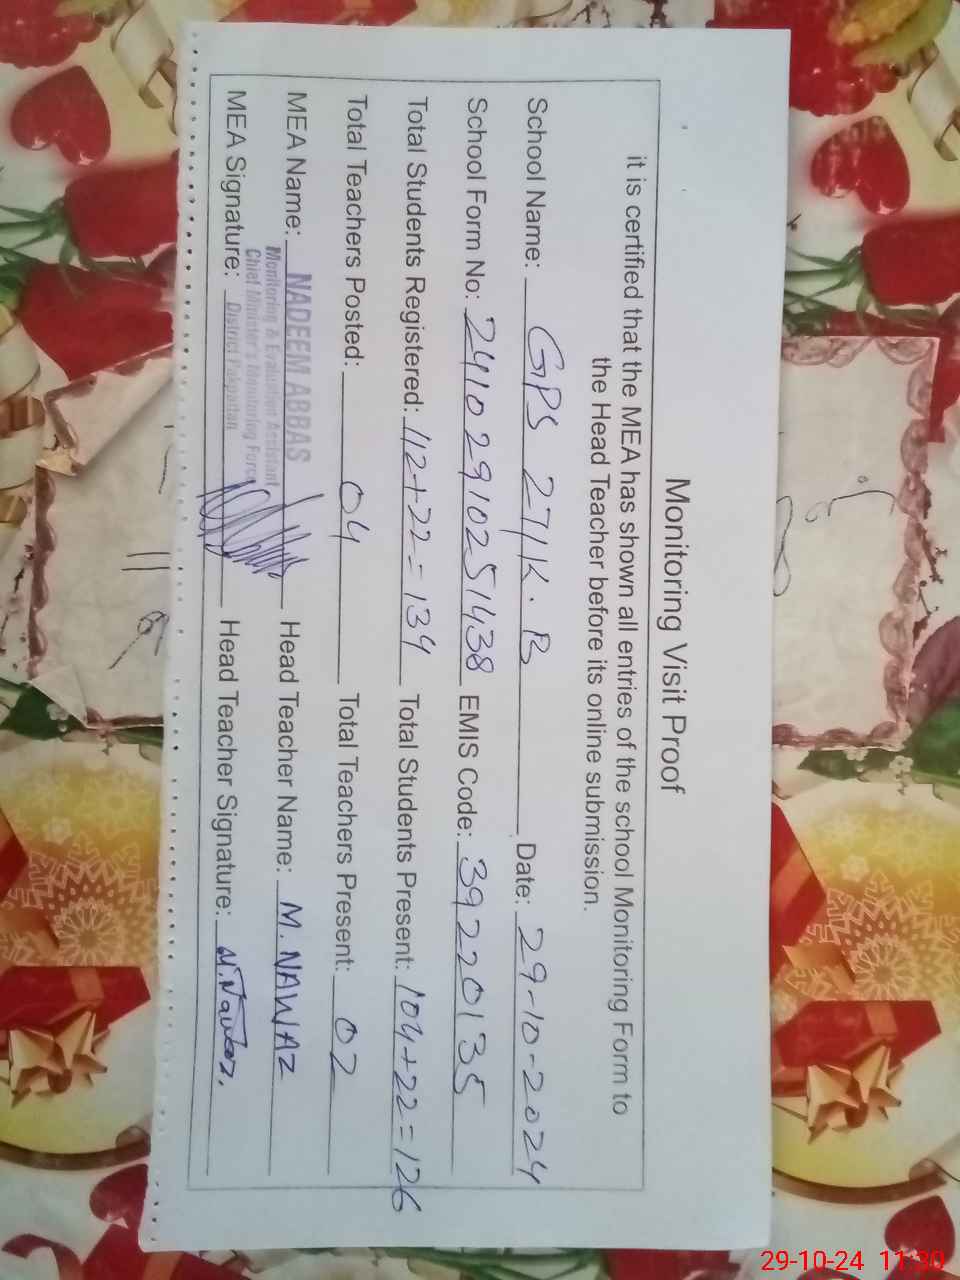 Monitoring Visit Proof
it is certified that the MEA has shown all entries of the school Monitoring Form to
the Head Teacher before its online submission.
School Name: GPS 27/K.B Date: 29-10-2024
School Form No: 24102910251438 EMIS Code: 39220135
Total Students Registered: 112+22=134 Total Students Present: 104+22=126
Total Teachers Posted: 04 Total Teachers Present: 02
MEA Name: NADEEM ABBAS Head Teacher Name: M. NAWAZ
Monitoring & Evaluation Assistant
Chief Minister's Monitoring Force
District Pakpattan
MEA Signature: Head Teacher Signature: M. Nawaz.
29-10-24 11:30